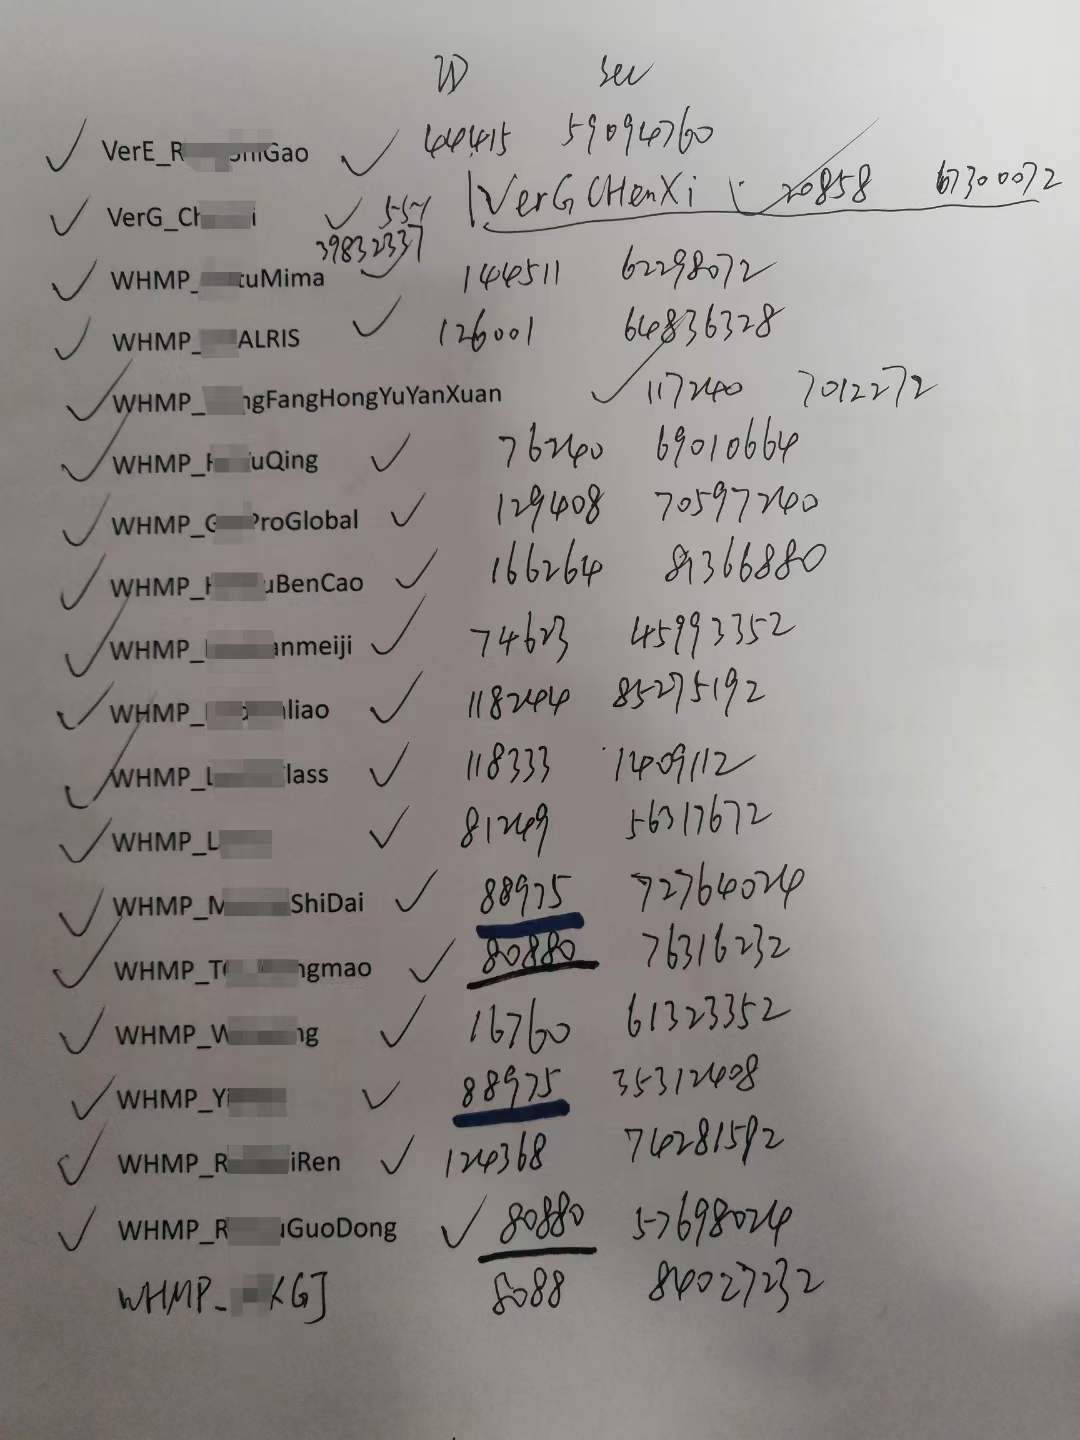 ID Sec
VerE_R hiGao 444415 59094760
VerG_Ch i 551 VerG CHenXi 20858 67300072
39832337
WHMP_ tuMima 144511 62298072
WHMP_ ALRIS 126001 64836328
WHMP_ ngFangHongYuYanXuan 117240 7012272
WHMP_H uQing 76240 69010664
WHMP_G ProGlobal 129408 70597240
WHMP_H uBenCao 166264 81366880
WHMP_ anmeiji 74623 45993352
WHMP_ liao 118244 85275192
WHMP_L lass 118333 1409112
WHMP_L 81249 56317672
WHMP_M ShiDai 88975 72764024
WHMP_T ngmao 80880 76316232
WHMP_W ng 16760 61323352
WHMP_Yi 88975 35312408
WHMP_R iRen 124368 74281592
WHMP_R uGuoDong 80880 57698024
WHMP_ KGJ 8088 84027232